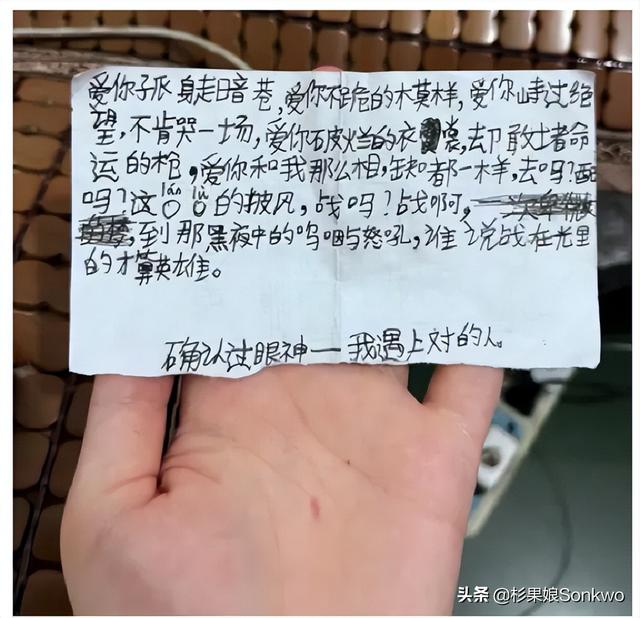 爱你孤身走暗巷,爱你不跪的模样,爱你峙过绝
望,不肯哭一场,爱你破烂的衣裳,却敢堵命
运的枪,爱你和我那么相,缺都一样,去吗?配
吗?这〇lán〇lǚ的披风,战吗?战啊,
到那黑夜中的呜咽与怒吼,谁说战在光里
的才算英雄。
确认过眼神——我遇上对的人。
头条 @杉果娘Sonkwo